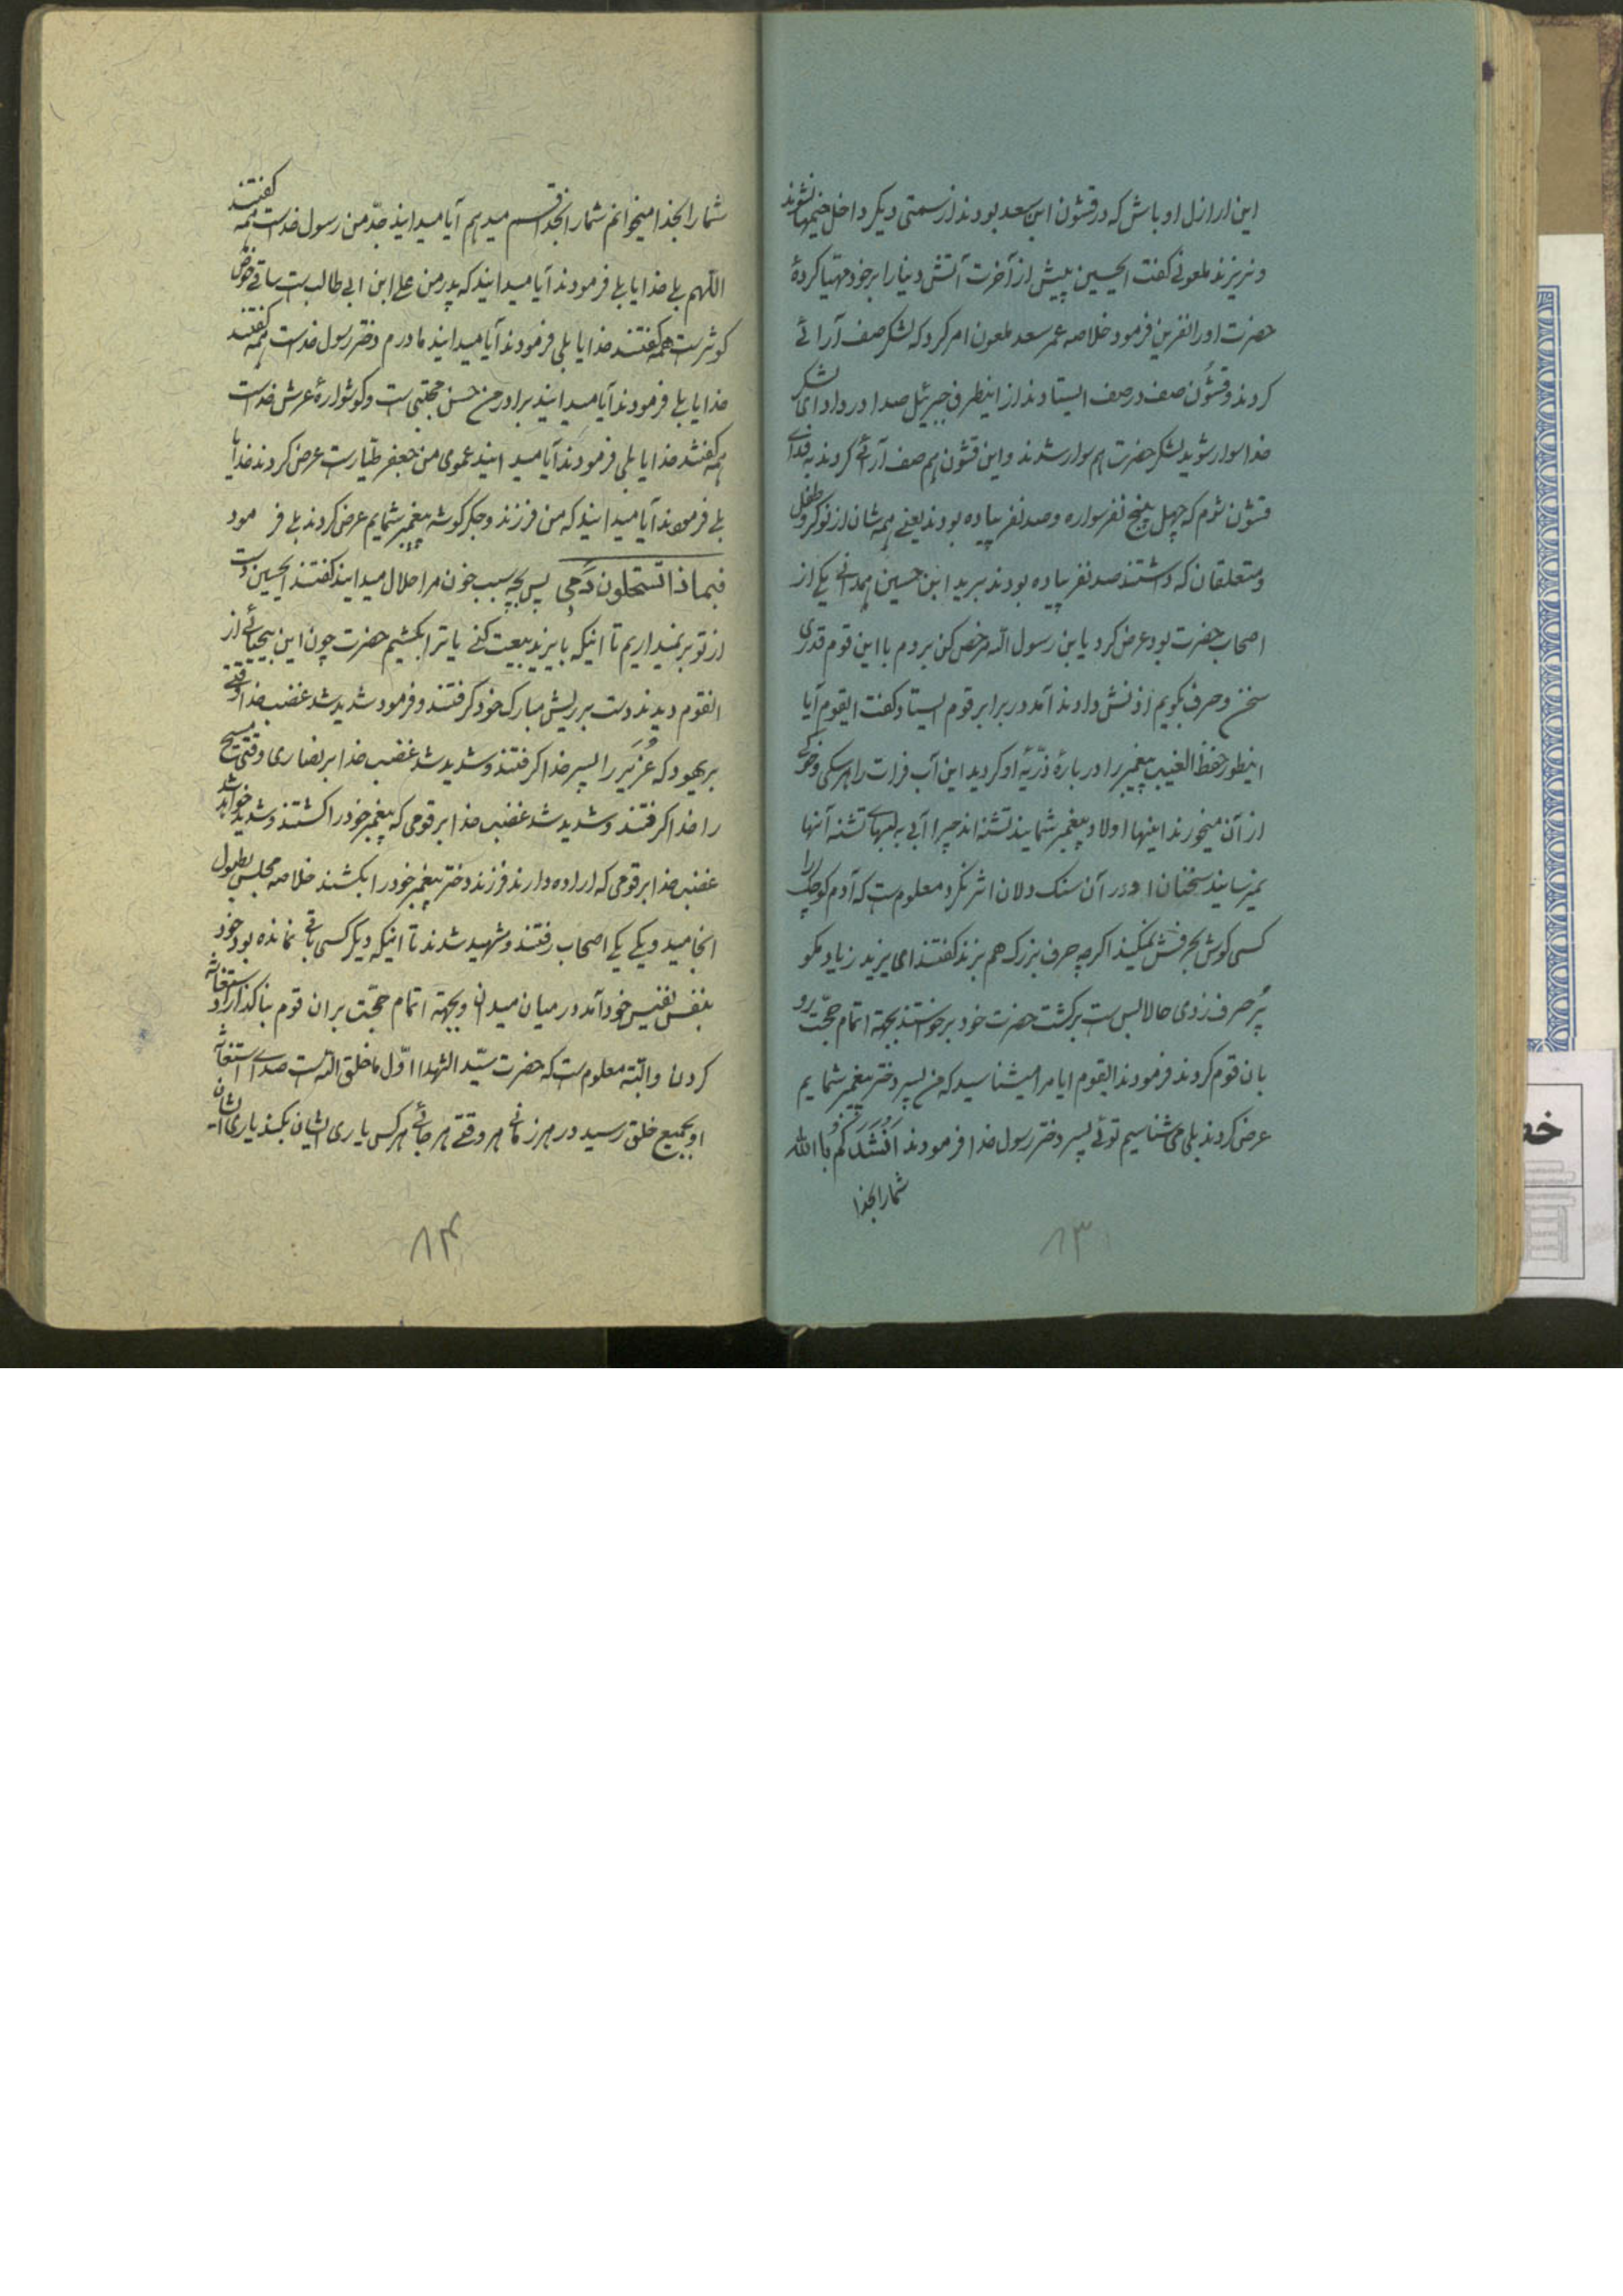 این ارازل اوباش که در قشون ابن سعد بودند از سمتی دیگر داخل خیمها نشوند
و نریزند ملعونی گفت ایحسین پیش از آخرت آتش دنیا را بر خود مهیّا کردهٔ
حضرت او را نفرین فرمود خلاصه عمر سعد ملعون امر کرد که لشکر صف آرائی
کردند و قشون صف در صف ایستادند از اینطرف جبرئیل صدا در داد ای لشکر
خدا سوار شوید لشکر حضرت هم سوار شدند و این قشون هم صف آرائی کردند به فدای
قشون شوم که چهل پنج نفر سواره و صد نفر پیاده بودند یعنی همه شان از نوکر و طفل
و متعلقان که داشتند صد نفر پیاده بودند بریر ابن حسین همدانی یکی از
اصحاب حضرت بود عرض کرد یابن رسول الله مرخص کن بروم با این قوم قدری
سخن و حرف بگویم اذنش دادند آمد در برابر قوم ایستاد گفت ایقوم آیا
اینطور حفظ الغیب پیغمبر را در بارهٔ ذرّیهٔ او کردید این آب فرات را هر سگی و خوکی
از آن میخورند اینها اولاد پیغمبر شمایند تشنه اند چرا آبی به لبهای تشنه آنها
نمیرسانید سخنان او در آن سنگ دلان اثر نکرد معلوم است که آدم کوچک را
کسی گوش بحرفش نمیکند اگرچه حرف بزرگ هم بزند گفتند ای بریر زیاد مگو
پُر حرف زدی حالا بس است برگشت حضرت خود برخواستند بجهة اتمام حجّت رو
بان قوم کردند فرمودند ایقوم ایا مرا میشناسید که من پسر دختر پیغمبر شمایم
عرض کردند بلی می شناسیم توئی پسر دختر رسول خدا فرمودند اَنْشَدَکُم باالله
شما را بخدا
۸۳
شما را بخدا میخوانم شما را بخدا قسم میدهم آیا میدانید جدّ من رسول خداست همه گفتند
اللهم بلی خدایا بلی فرمودند آیا میدانید که پدر من علی ابن ابی طالب است ساقی حوض
کوثر است همه گفتند خدایا بلی فرمودند آیا میدانید مادرم دختر رسول خداست همه گفتند
خدایا بلی فرمودند آیا میدانید برادر من حسن مجتبی است و گوشوارهٔ عرش خداست
همه گفتند خدایا بلی فرمودند آیا میدانید عموی من جعفر طیّار است عرض کردند خدایا
بلی فرمودند آیا میدانید که من فرزند و جگر گوشه پیغمبر شمایم عرض کردند بلی فرمود
فبماذا تستحلون دَمی پس بچه سبب خون مرا حلال میدانید گفتند ایحسین دست
از تو بر نمیداریم تا اینکه با یزید بیعت کنی یا ترا بکشیم حضرت چون این بیحیائی از
انقوم دیدند دست بر ریش مبارک خود گرفتند و فرمود شدید شد غضب خدا وقتی
بر یهود که عُزَیر را پسر خدا گرفتند و شدید شد غضب خدا بر نصاری وقتی مسیح
را خدا گرفتند و شدید شد غضب خدا بر قومی که پیغمبر خود را کشتند و شدید خواهد شد
غضب خدا بر قومی که اراده دارند فرزند دختر پیغمبر خود را بکشند خلاصه مجلس بطول
انجامید و یکی یکی اصحاب رفتند و شهید شدند تا اینکه دیگر کسی باقی نمانده بود خود
بنفس نفیس خود آمد در میان میدان و بجهة اتمام حجّت بر ان قوم بنا گذارد استغاثه
کردن و البته معلوم است که حضرت سیّد الشهدا اوّل ما خلق الله است صدای استغاثه
او بجمیع خلق رسید در هر زمانی هر وقتی هر جائی هر کس یاری ایشان بکند یاری ایشان
۸۴
خط